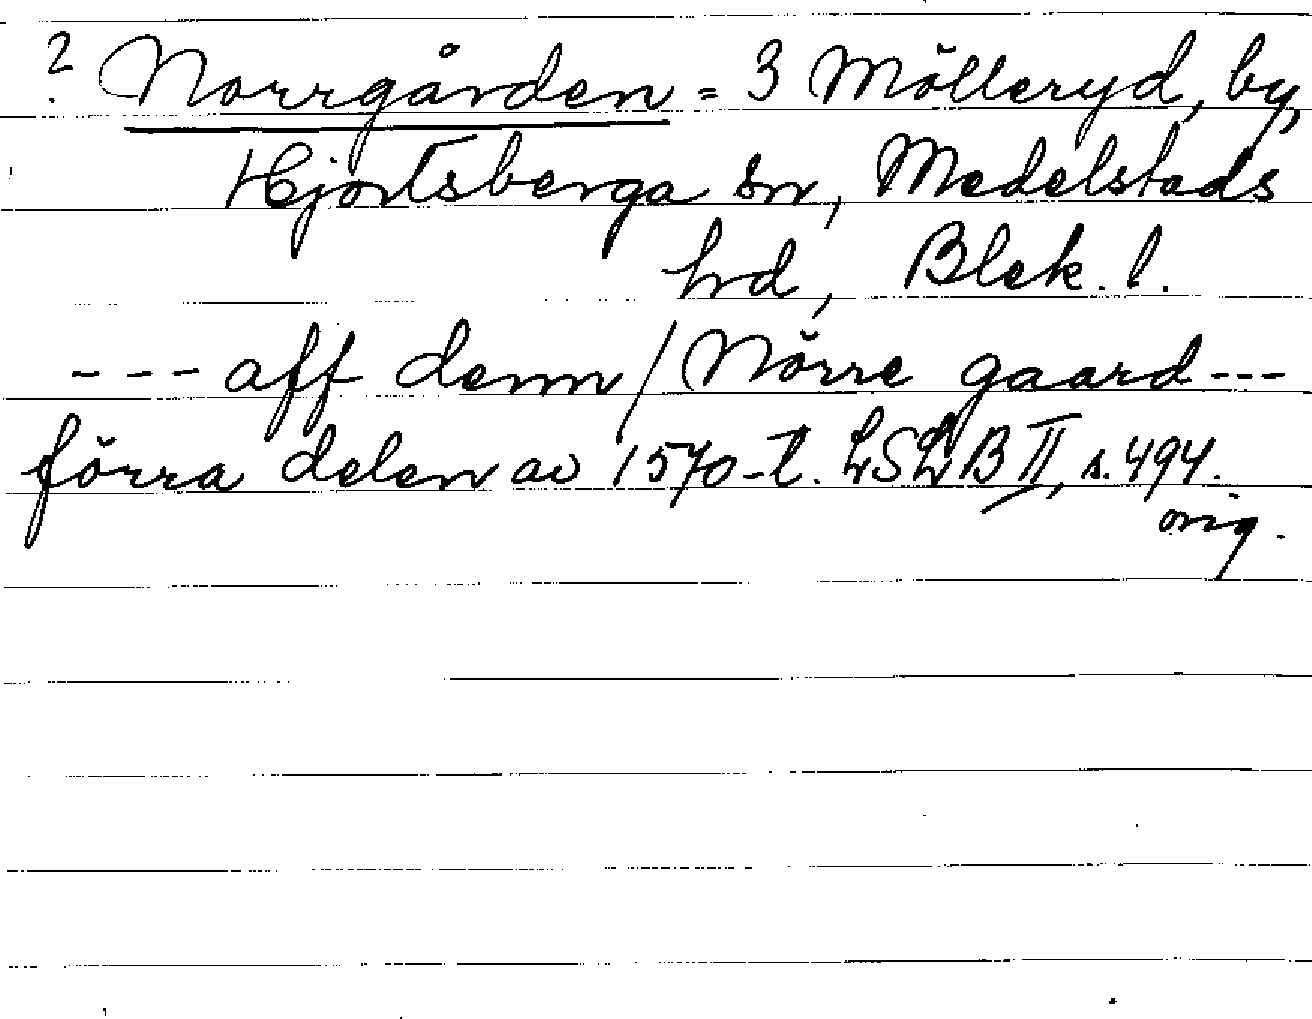 ? Norrgården = 3 Mölleryd, by,
Hjortsberga sn, Medelstads
hrd, Blek. l.
--- aff denn/Nörre gaard ---
förra delen av 1570-t. LSLB II, s. 494.
orig.